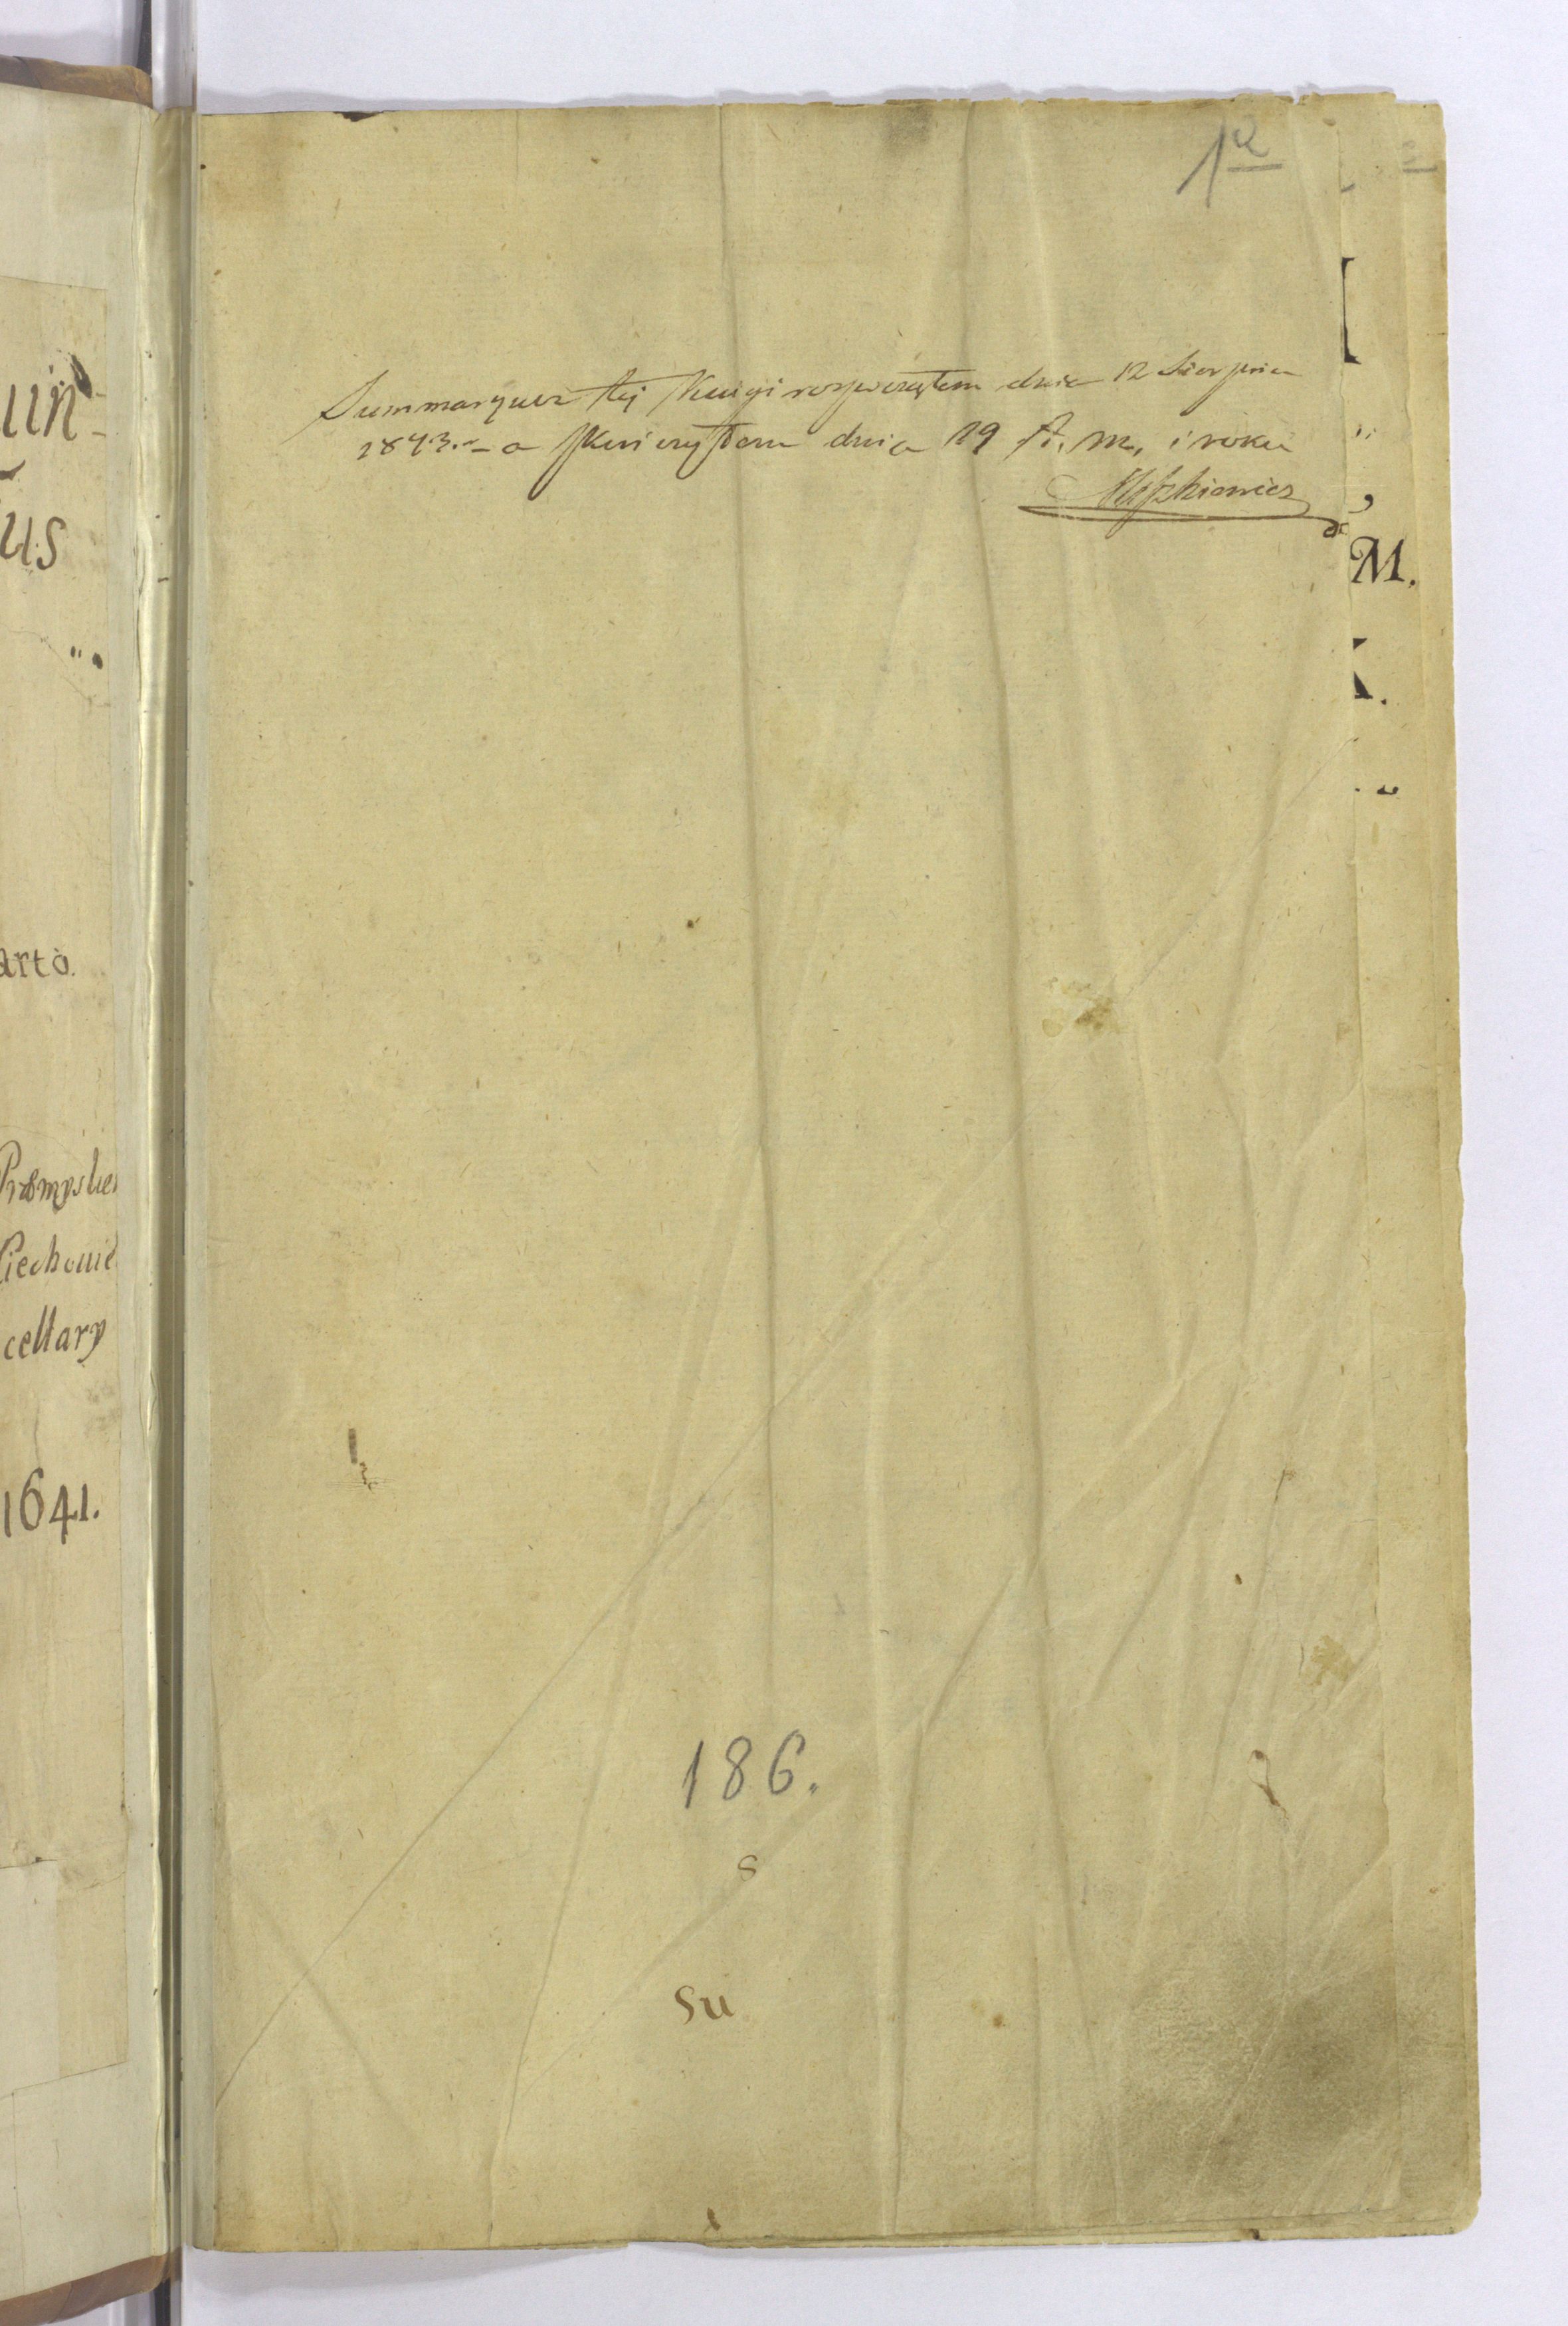 uin-
us
arto.
Premyslien
Ciechowie
cellary
1641.
1a
Summaryusz tej Księgi rospocząłem dnia 12 Sierpnia
1843.- a skończyłem dnia 19 t. m. i roku
M.
186.
s
su